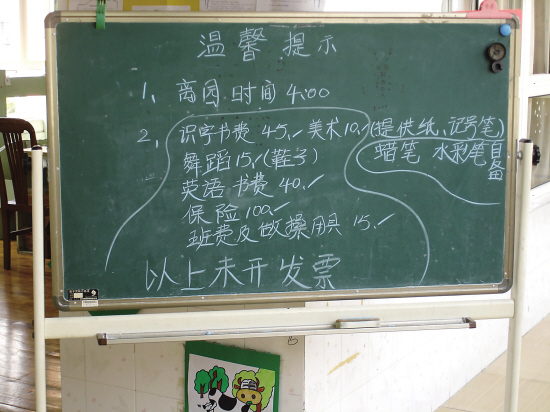 温馨提示
1、离园时间 4:00
2、识字书费 45.✓ 美术10.✓(提供纸、记号笔)
蜡笔 水彩笔自备
舞蹈15.✓(鞋子)
英语书费 40.✓
保险 100.✓
班费及做操用具 15.✓
以上未开发票